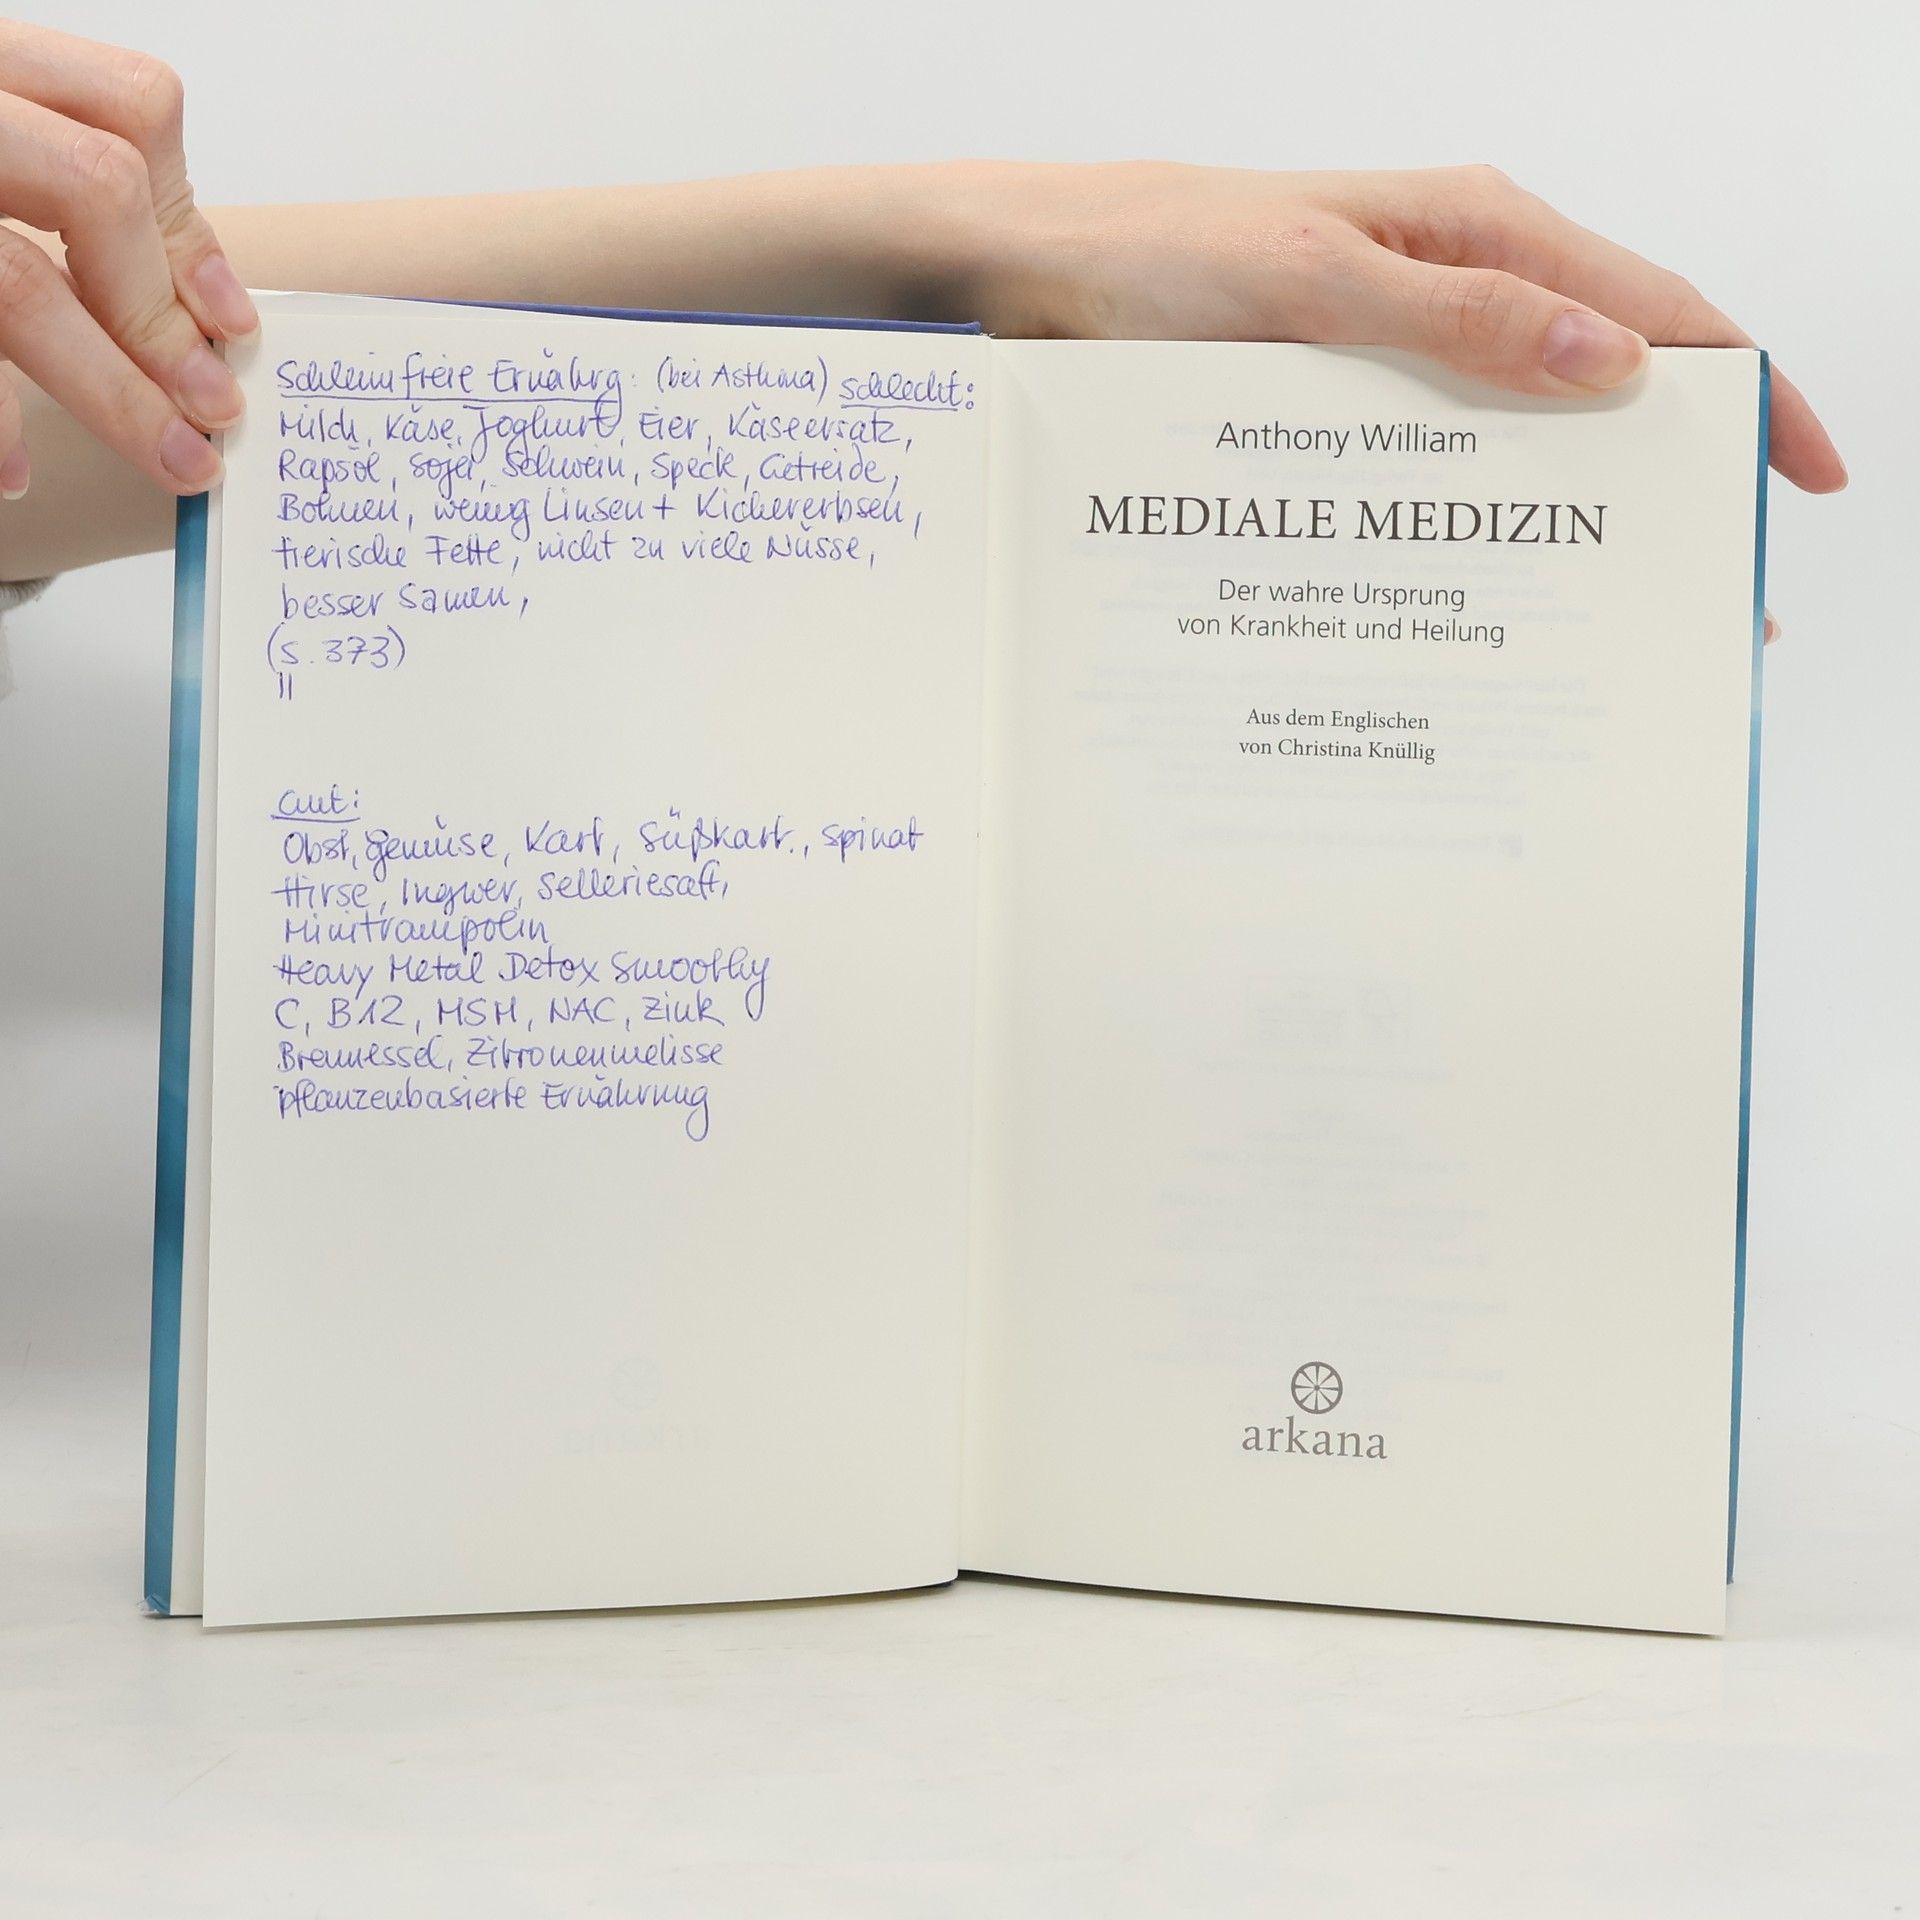 Schleimfreie Ernährg: (bei Asthma) schlecht:
Milch, Käse, Joghurt, Eier, Käseersatz,
Rapsöl, Soja, Schwein, Speck, Getreide,
Bohnen, wenig Linsen + Kichererbsen,
tierische Fette, nicht zu viele Nüsse,
besser Samen,
(S. 373)
Gut:
Obst, Gemüse, Kart, Süßkart., Spinat
Hirse, Ingwer, Selleriesaft,
Minitrampolin
Heavy Metal Detox Smoothy
C, B12, MSM, NAC, Zink
Brennessel, Zitronenmelisse
pflanzenbasierte Ernährung
Anthony William
MEDIALE MEDIZIN
Der wahre Ursprung
von Krankheit und Heilung
Aus dem Englischen
von Christina Knüllig
arkana